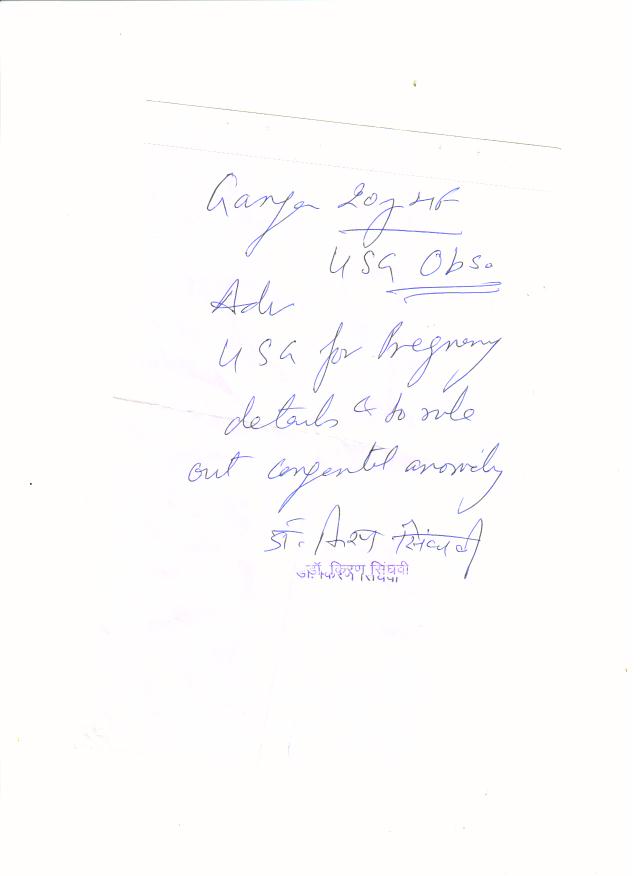 Ganga 20y F
USG Obs.
Adv
USG for Pregnancy
details & to rule
out congenital anomaly
डॉ. किरण सिंघवी
डॉ. किरण सिंघवी